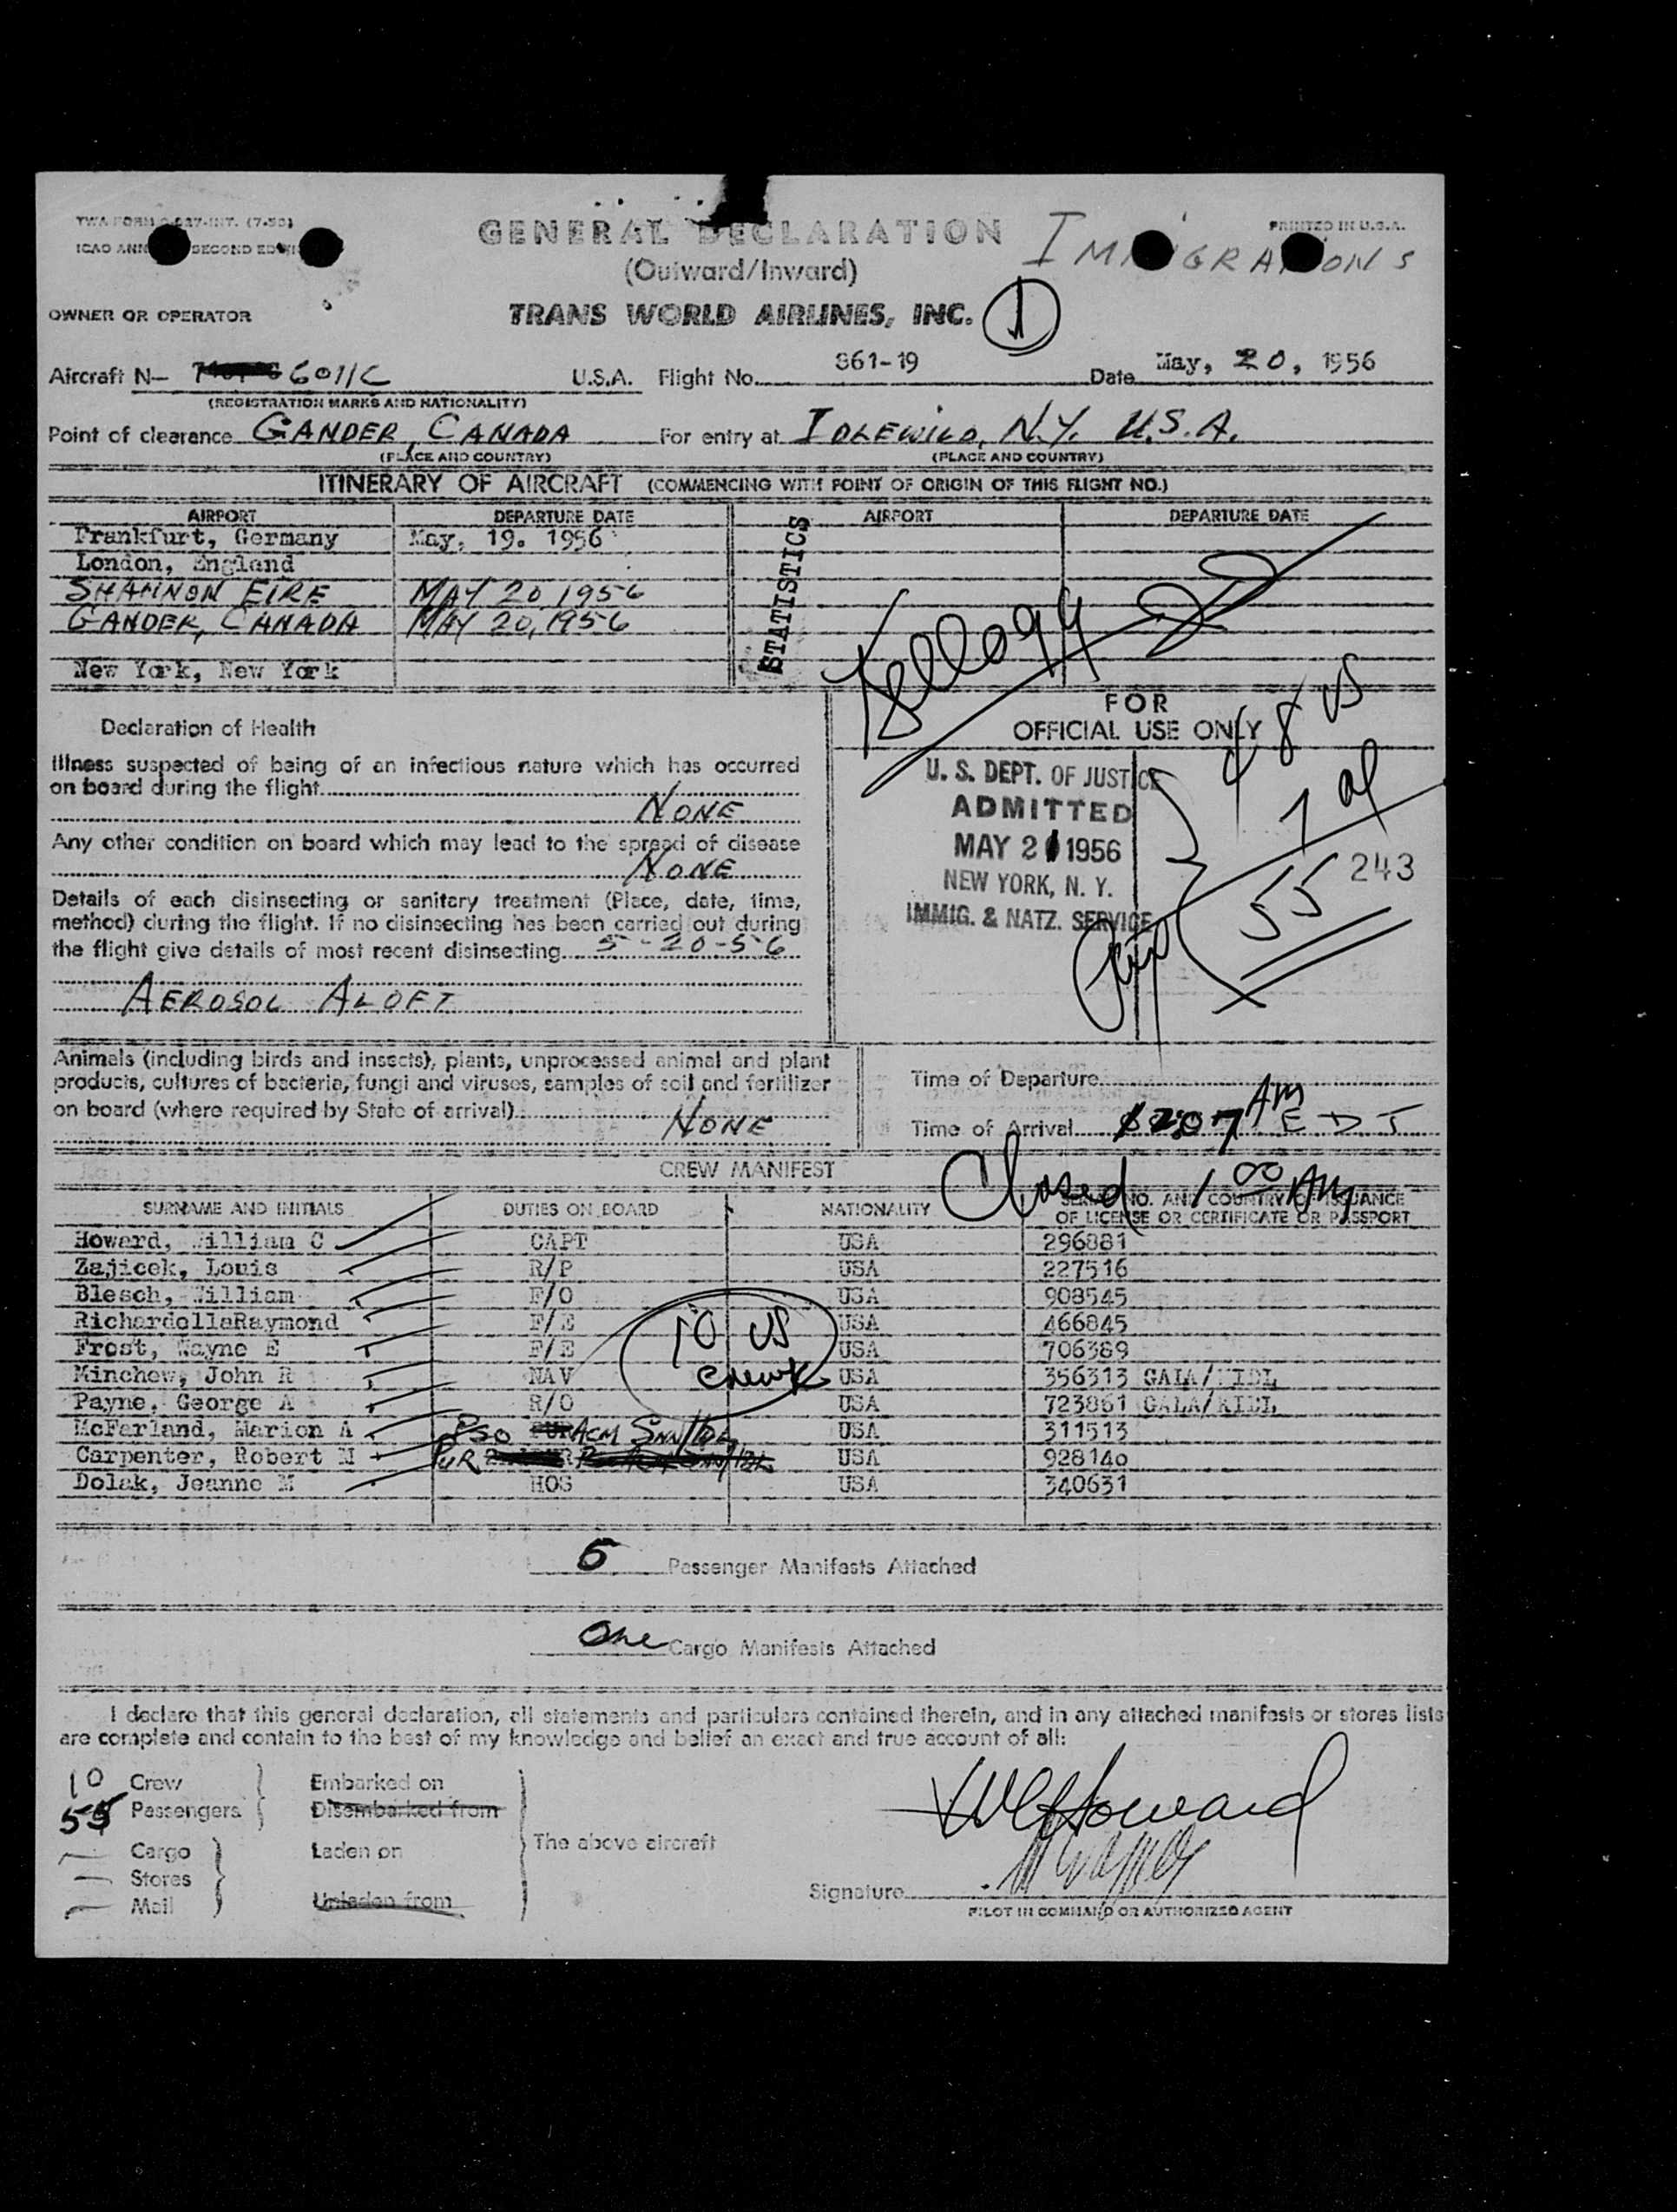 TWA FORM
(7-50)
ICAO ANN
SECOND
GENERAL DECLARATION
(Outward/Inward)
PRINTED IN U.S.A.
OWNER OR OPERATOR
TRANS WORLD AIRLINES, INC.
1
Aircraft N— 6011C U.S.A. Flight No. 861-19 Date May, 20, 1956
(REGISTRATION MARKS AND NATIONALITY)
Point of clearance GANDER, CANADA For entry at IDLEWILD, N.Y. U.S.A.
(PLACE AND COUNTRY) (PLACE AND COUNTRY)
ITINERARY OF AIRCRAFT (COMMENCING WITH POINT OF ORIGIN OF THIS FLIGHT NO.)
AIRPORT DEPARTURE DATE AIRPORT DEPARTURE DATE
Frankfurt, Germany May, 19. 1956
London, England
SHANNON EIRE MAY 20 1956
GANDER, CANADA MAY 20, 1956
New York, New York
STATISTICS
Kellogg
Declaration of Health
Illness suspected of being of an infectious nature which has occurred
on board during the flight
NONE
Any other condition on board which may lead to the spread of disease
NONE
Details of each disinsecting or sanitary treatment (Place, date, time,
method) during the flight. If no disinsecting has been carried out during
the flight give details of most recent disinsecting 5-20-56
AEROSOL ALOFT
FOR
OFFICIAL USE ONLY
U. S. DEPT. OF JUSTICE
ADMITTED
MAY 21 1956
NEW YORK, N. Y.
IMMIG. & NATZ. SERVICE
48 US
7 al
55
243
Animals (including birds and insects), plants, unprocessed animal and plant
products, cultures of bacteria, fungi and viruses, samples of soil and fertilizer
on board (where required by State of arrival)
NONE
Time of Departure
Time of Arrival 1207 AM EDT
Closed 1 00 AM
CREW MANIFEST
SURNAME AND INITIALS DUTIES ON BOARD NATIONALITY SERIAL NO. AND COUNTRY OF ISSUANCE
OF LICENSE OR CERTIFICATE OR PASSPORT
Howard, William C CAPT USA 296881
Zajicek, Louis R/P USA 227516
Blesch, William F/O USA 908545
RichardellaRaymond F/E USA 466845
Frost, Wayne E F/E USA 706389
Minchew, John R NAV USA 356313 GALA/KIDL
Payne, George A R/O USA 723861 GALA/KIDL
McFarland, Marion A PSO ACM SNN/IDL USA 311513
Carpenter, Robert M PUR USA 928140
Dolak, Jeanne M HOS USA 340631
10 US
Crew
5 Passenger Manifests Attached
One Cargo Manifests Attached
I declare that this general declaration, all statements and particulars contained therein, and in any attached manifests or stores lists
are complete and contain to the best of my knowledge and belief an exact and true account of all:
10 Crew
55 Passengers
Cargo
Stores
Mail
Embarked on
Disembarked from
Laden on
Unladen from
The above aircraft
WC Howard
Signature
PILOT IN COMMAND OR AUTHORIZED AGENT